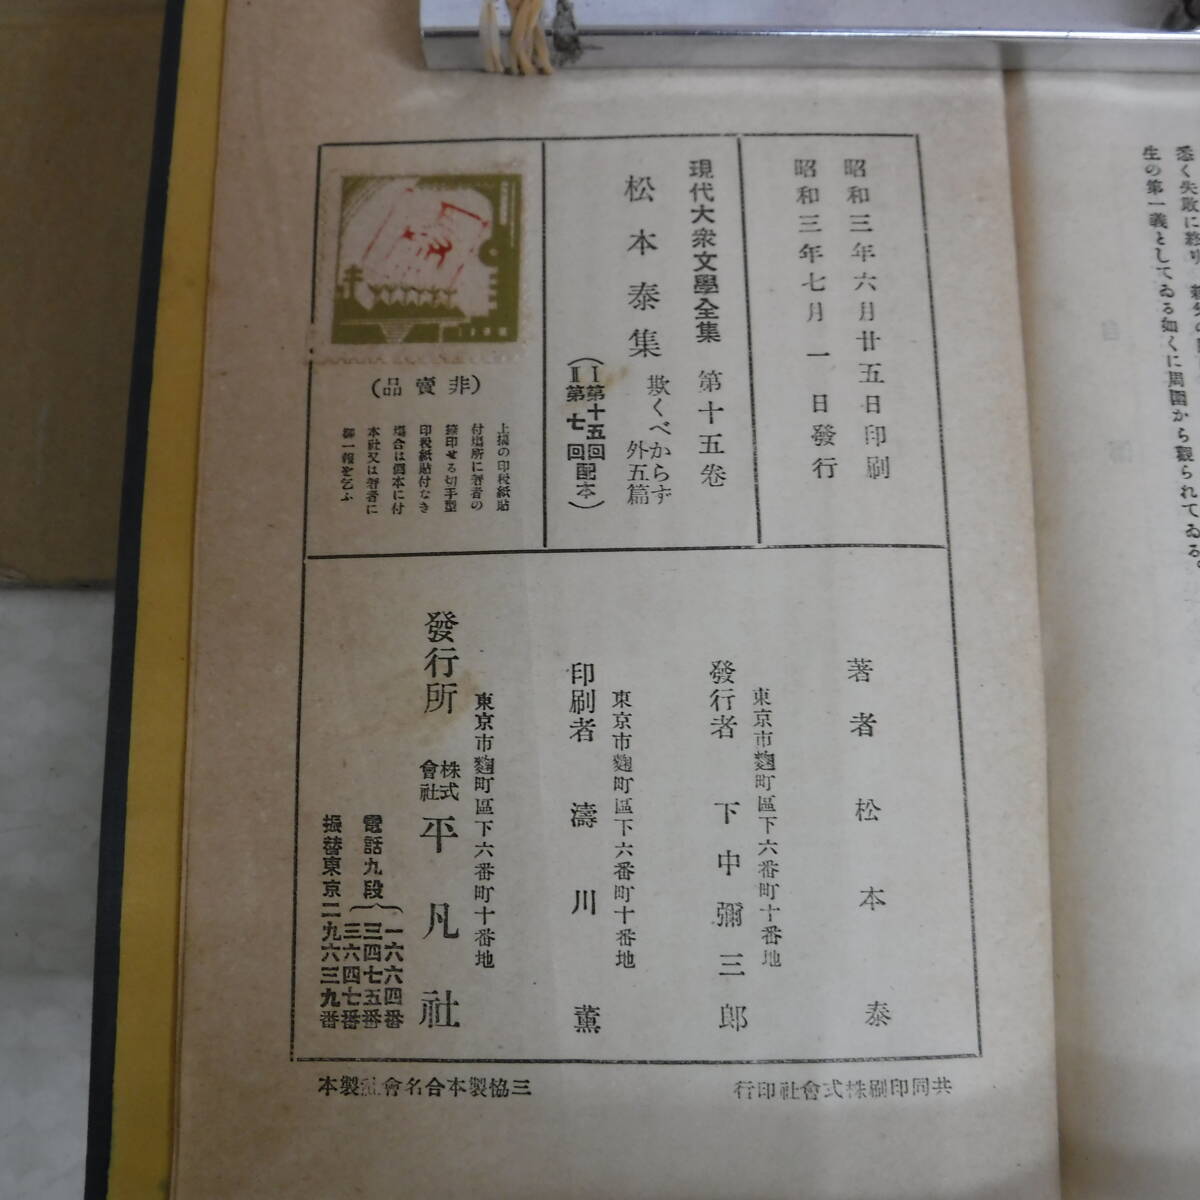 悉く失敗に終り
生の第一義としてゐる如くに周圍から觀られてゐる。
昭和三年六月廿五日印刷
昭和三年七月一日發行
現代大衆文學全集 第十五卷
松本泰集 欺くべからず 外五篇
(I第十五回
II第七回配本)
(非賣品)
上揭の印税紙貼
付場所に著者の
印税紙貼付なき
場合は個本に付
本社又は著者に
御一報を乞ふ
著者 松本泰
東京市麴町區下六番町十番地
發行者 下中彌三郎
東京市麴町區下六番町十番地
印刷者 濤川薰
東京市麴町區下六番町十番地
發行所 株式會社 平凡社
電話九段(一六六四番
三四七五番
三六四七番
振替東京二九六三九番
共同印刷株式會社印行
三協製本合名會社製本